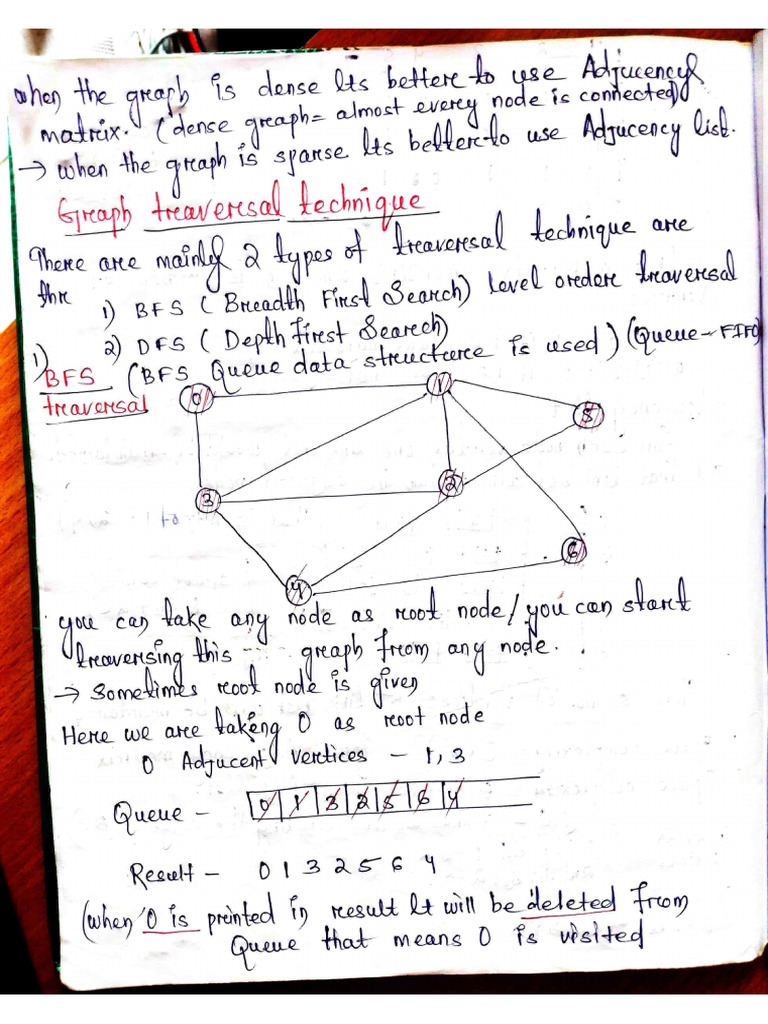 when the graph is dense Its bettere to use Adjucency
matrix. (dense greaph = almost everey node is connected)
→ when the greaph is sparse Its better to use Adjucency list.
Greaph treaveresal technique
There are mainly 2 types of treaveresal technique are
thre
1) BFS ( Breadth First Search) level oredere treaveresal
2) DFS ( Depth First Seareh)
1) BFS (BFS Queue data structure is used) (Queue - FIFO)
treaveresal
0
1
5
3
2
to
6
4
you can take any node as reoot node/you can start
treaversing this greaph from any node.
→ Sometimes reoot node is given
Here we are taking 0 as reoot node
0 Adjucent Vertices - 1, 3
Queue - 0 1 3 2 5 6 4
Result - 0 1 3 2 5 6 4
(when 0 is preinted in result It will be deleted from
Queue that means 0 is visited